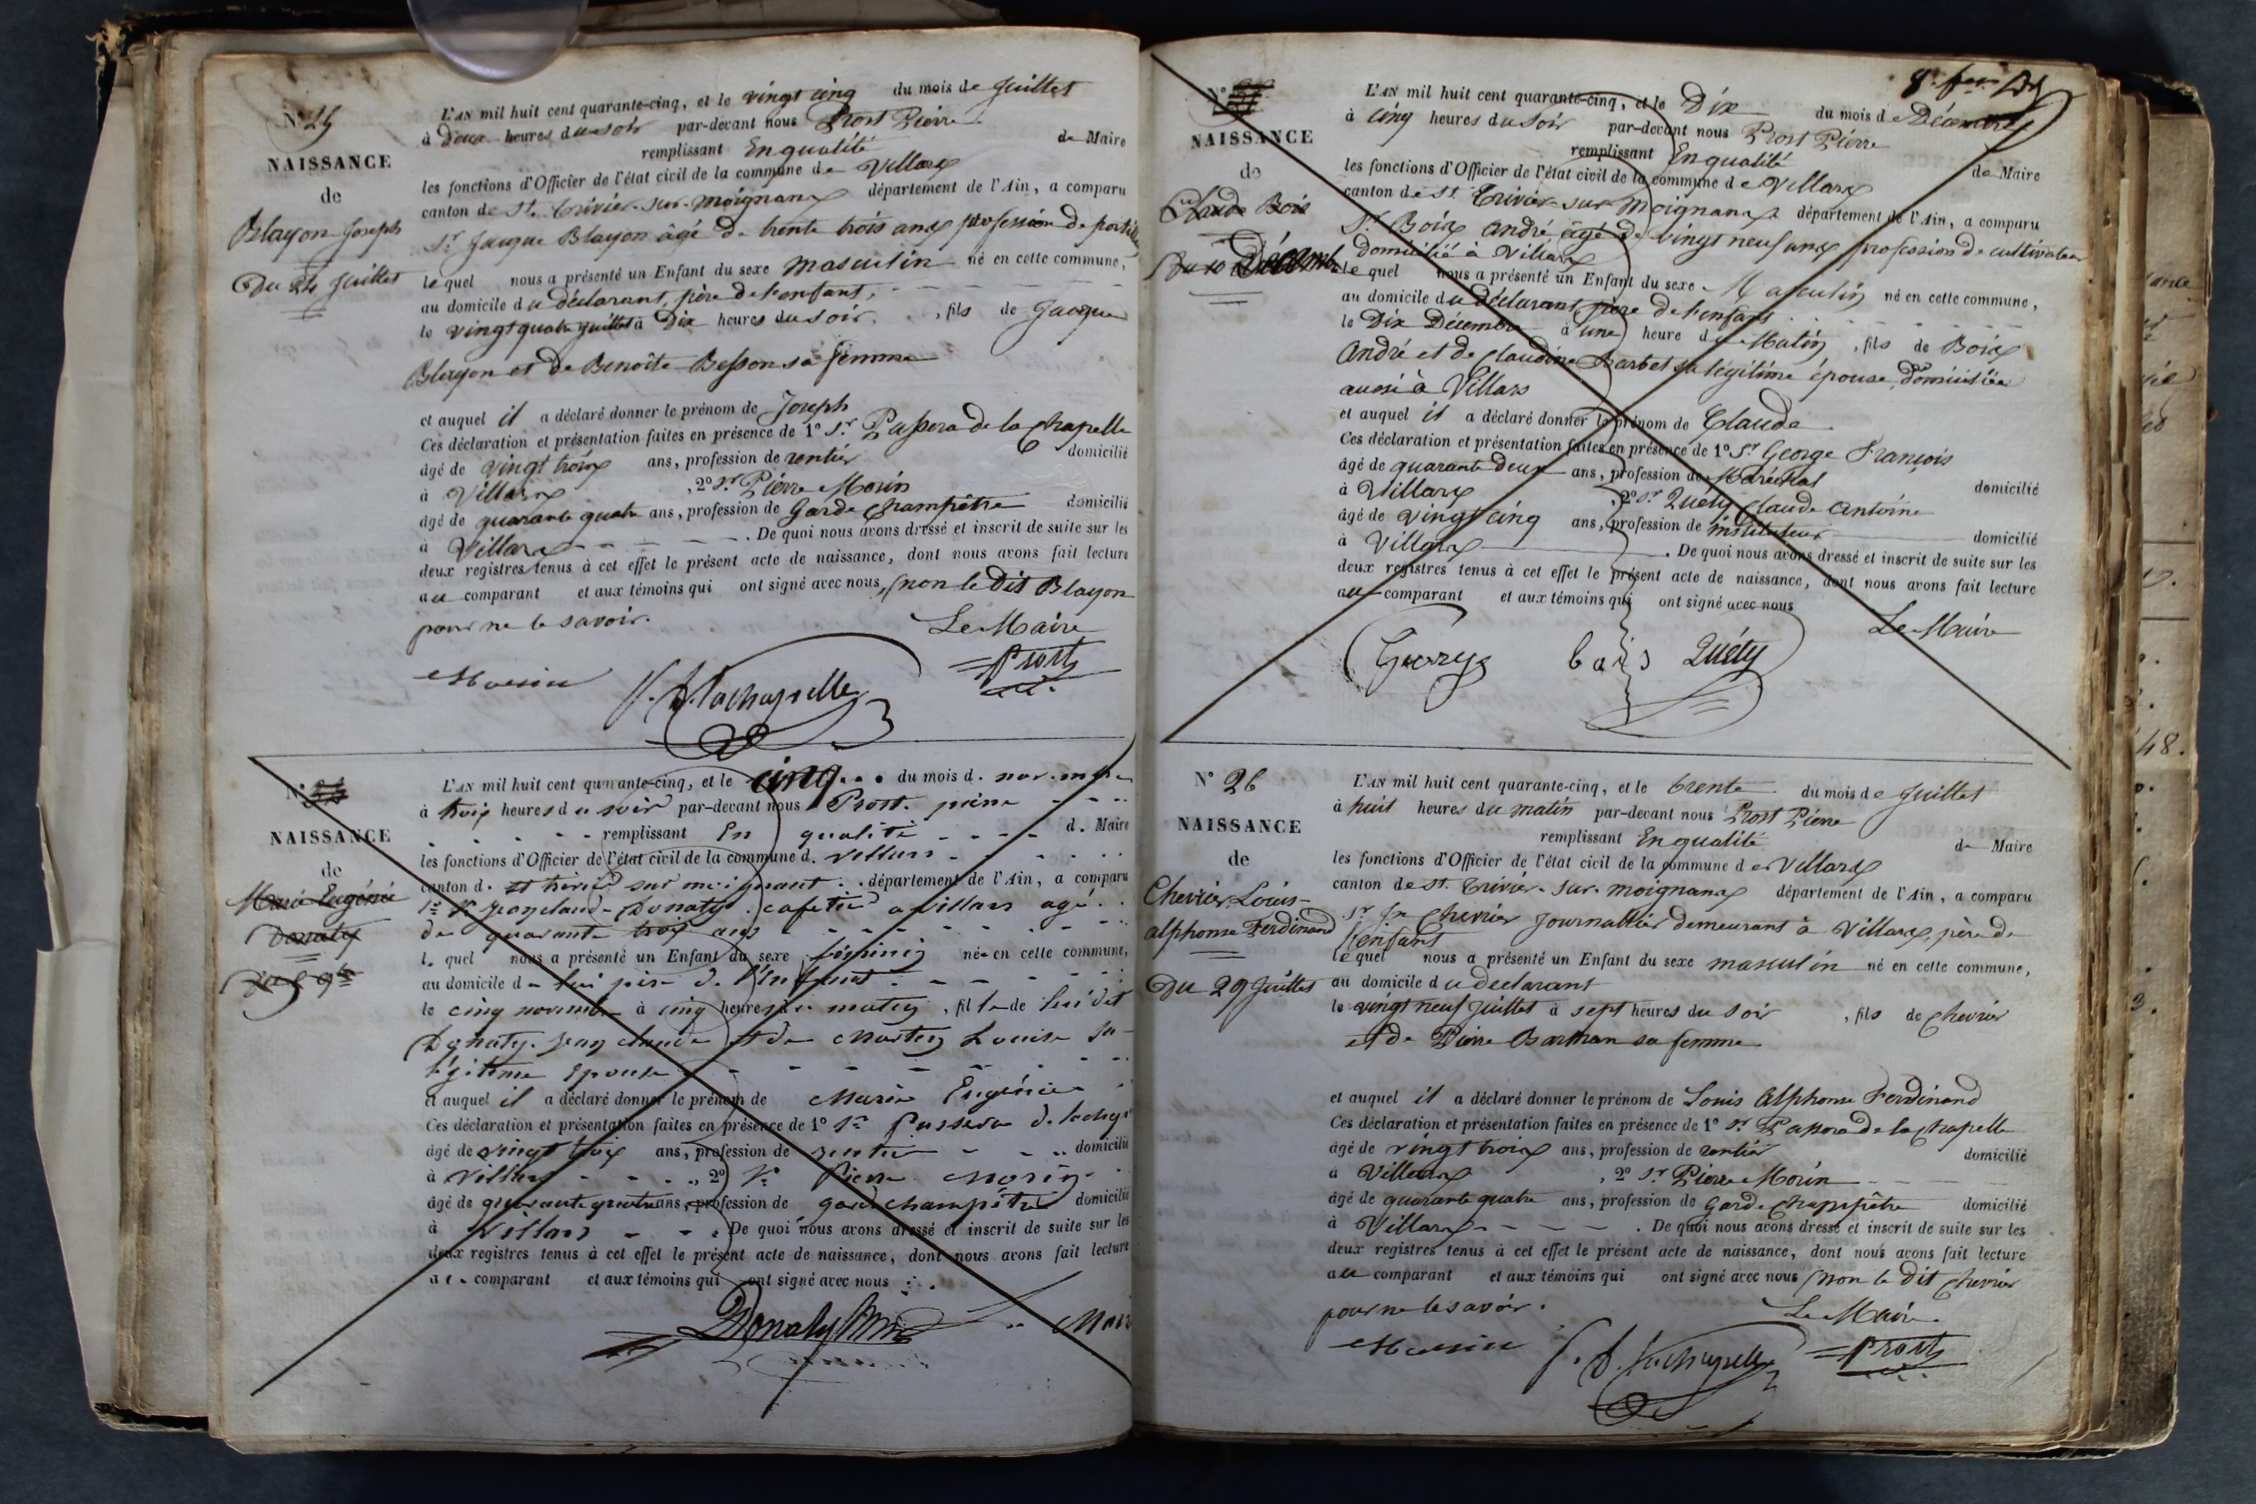 N° 25
NAISSANCE
de
Blayon Joseph
Du 24 Juillet
L'AN mil huit cent quarante-cinq, et le vingt cinq du mois de Juillet
à Deux heures du soir par-devant nous Prost Pierre
remplissant En qualité de Maire
les fonctions d'Officier de l'état civil de la commune de Villars
canton de St. Trivier-sur-moignans département de l'Ain, a comparu
Sr. Jacque Blayon âgé de trente trois ans profession de
lequel nous a présenté un Enfant du sexe masculin né en cette commune,
au domicile du déclarant, père de l'enfant,
le vingt quatre Juillet à Dix heures du soir, fils de Jacque
Blayon et de Benoîte Besson sa femme
et auquel il a déclaré donner le prénom de Joseph
Ces déclaration et présentation faites en présence de 1° Sr Passera de la Chapelle
âgé de vingt trois ans, profession de rentier domicilié
à Villars, 2° Sr Pierre Morin
âgé de quarante quatre ans, profession de Garde Champêtre domicilié
à Villars. De quoi nous avons dressé et inscrit de suite sur les
deux registres tenus à cet effet le présent acte de naissance, dont nous avons fait lecture
au comparant et aux témoins qui ont signé avec nous, non le dit Blayon
pour ne le savoir.
Le Maire
Prost
Morin Lachapelle
NAISSANCE
de
Marie Eugénie
Donaty
Du 5 9bre
L'AN mil huit cent quarante-cinq, et le cinq du mois d. novembre
à trois heures du soir par-devant nous Prost pierre
remplissant En qualité d. Maire
les fonctions d'Officier de l'état civil de la commune d. Villars
canton d. st trivier sur moignant département de l'Ain, a comparu
Sr Jean claude Donaty cafetier a villars agé
de quarante trois ans
l. quel nous a présenté un Enfant du sexe féminin née en cette commune,
au domicile de lui père de l'Enfant
le cinq novembre à cinq heures du matin, fille de lui dit
Donaty Jean claude et de Martin Louise sa
légitime Epouse
et auquel il a déclaré donner le prénom de Marie Eugénie
Ces déclaration et présentation faites en présence de 1° Sr Passera de lachap
âgé de vingt trois ans, profession de rentier domicilié
à Villars, 2° Sr Pierre Morin
âgé de quarante quatre ans, profession de garde champêtre domicilié
à Villars. De quoi nous avons dressé et inscrit de suite sur les
deux registres tenus à cet effet le présent acte de naissance, dont nous avons fait lecture
au comparant et aux témoins qui ont signé avec nous
Donaty
NAISSANCE
de
Claude Bois
Du 10 Décembre
L'AN mil huit cent quarante-cinq, et le Dix du mois de Décembre
à cinq heures du soir par-devant nous Prost Pierre
remplissant En qualité de Maire
les fonctions d'Officier de l'état civil de la commune de Villars
canton de St Trivier-sur Moignans département de l'Ain, a comparu
Sr. Bois André âgé de vingt neuf ans profession de cultivateur
domicilié à Villars
lequel nous a présenté un Enfant du sexe Masculin né en cette commune,
au domicile du déclarant, père de l'enfant
le Dix Décembre à une heure du Matin, fils de Bois
André et de Claudine Barbet sa légitime épouse, domiciliée
aussi à Villars
et auquel il a déclaré donner le prénom de Claude
Ces déclaration et présentation faites en présence de 1° Sr George François
âgé de quarante deux ans, profession de Maréchal domicilié
à Villars, 2° Sr Quéty Claude Antoine
âgé de vingt cinq ans, profession de instituteur domicilié
à Villars. De quoi nous avons dressé et inscrit de suite sur les
deux registres tenus à cet effet le présent acte de naissance, dont nous avons fait lecture
au comparant et aux témoins qui ont signé avec nous
Le Maire
bois Quéty
N° 26
NAISSANCE
de
Chevrier Louis-
alphonse Ferdinand
Du 29 Juillet
L'AN mil huit cent quarante-cinq, et le trente du mois de Juillet
à huit heures du matin par-devant nous Prost Pierre
remplissant En qualité de Maire
les fonctions d'Officier de l'état civil de la commune de Villars
canton de St. Trivier-sur-moignans département de l'Ain, a comparu
Sr Jn Chevrier Journallier demeurant à Villars, père de
l'enfant
lequel nous a présenté un Enfant du sexe masculin né en cette commune,
au domicile du declarant
le vingt neuf Juillet à sept heures du soir, fils de Chevrier
et de Pierre Barman sa femme
et auquel il a déclaré donner le prénom de Louis Alphonse Ferdinand
Ces déclaration et présentation faites en présence de 1° Sr Passera de la Chapelle
âgé de vingt trois ans, profession de rentier domicilié
à Villars, 2° Sr Pierre Morin
âgé de quarante quatre ans, profession de Garde Champêtre domicilié
à Villars. De quoi nous avons dressé et inscrit de suite sur les
deux registres tenus à cet effet le présent acte de naissance, dont nous avons fait lecture
au comparant et aux témoins qui ont signé avec nous non le dit Chevrier
pour ne le savoir.
Le Maire
Morin Lachapelle Prost